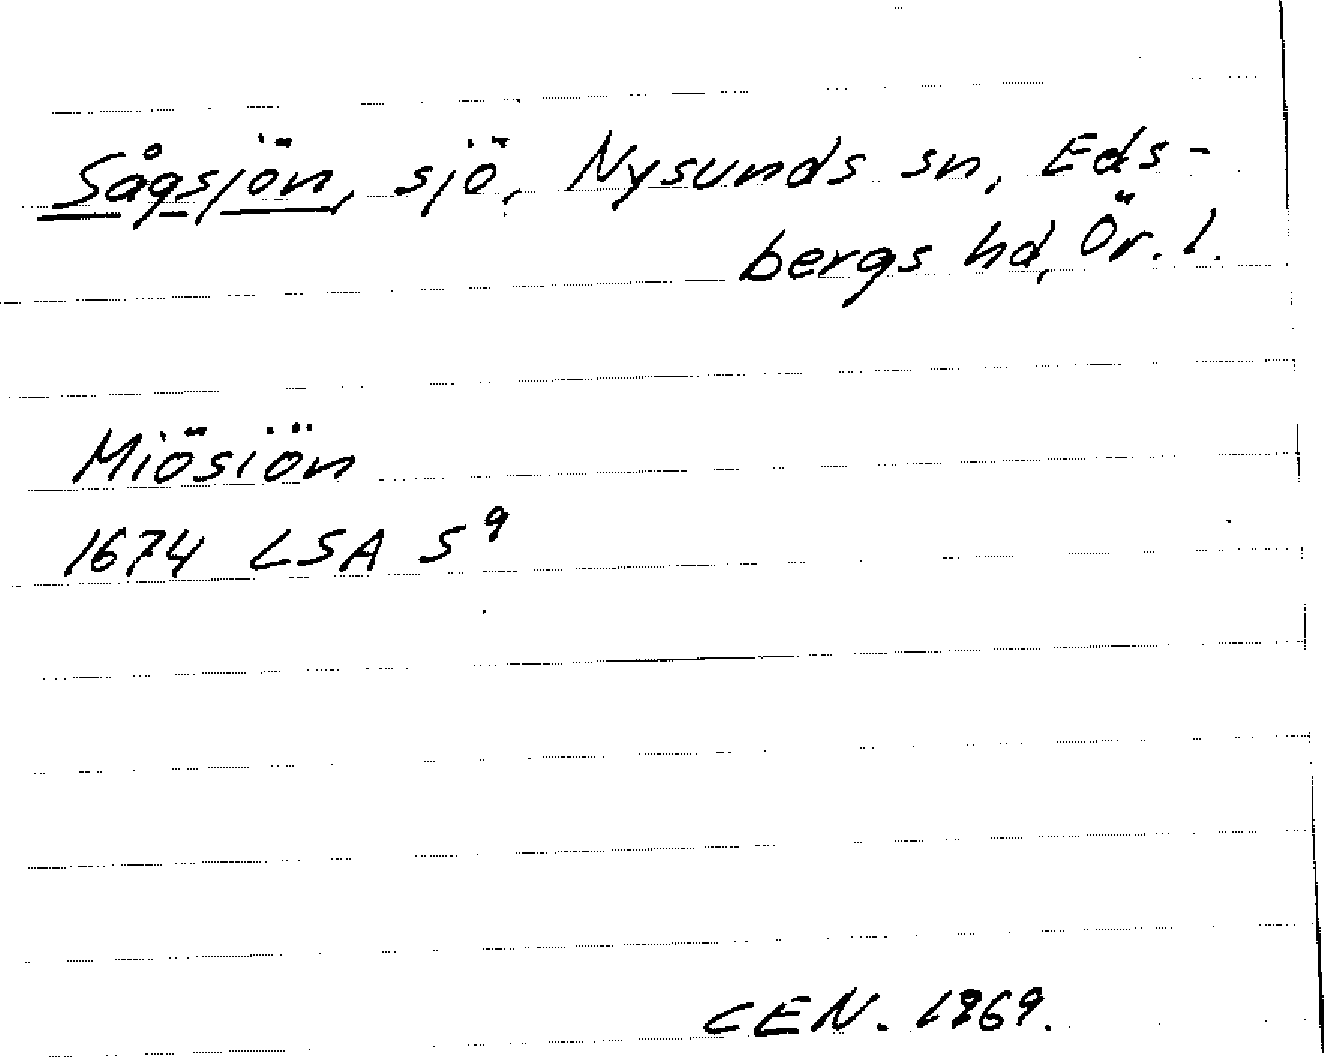 Sågsjön, sjö, Nysunds sn, Eds-
bergs hd, Ör. l.
Miösiön
1674 LSA S⁹
CEN. 1969.